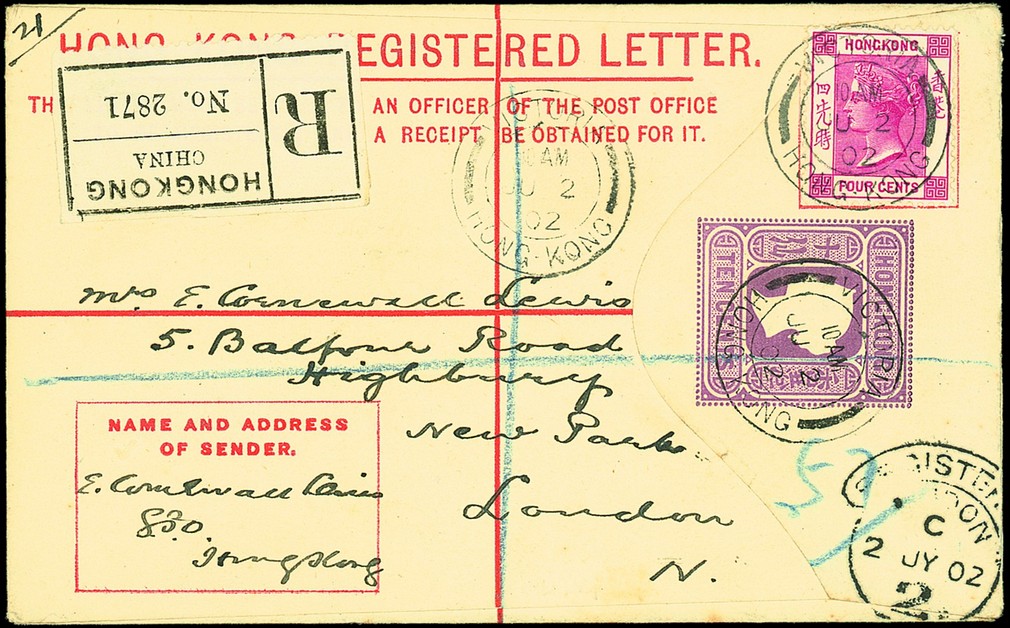 21
HONG KONG REGISTERED LETTER.
TH AN OFFICER OF THE POST OFFICE
A RECEIPT BE OBTAINED FOR IT.
R
No. 2871
HONGKONG
CHINA
VICTORIA
10 AM
JU 2
02
HONG-KONG
HONGKONG
香港
四先時
FOUR CENTS
VICTORIA
10 AM
JU 2
02
HONG-KONG
HONG KONG
TEN CENTS
VICTORIA
10 AM
JU 2
02
HONG-KONG
Mrs E. Cornewall Lewis
5. Balfour Road
Highbury
New Park
London
N.
NAME AND ADDRESS
OF SENDER.
E. Cornewall Lewis
HongKong
57
REGISTERED
LONDON
C
2 JY 02
2